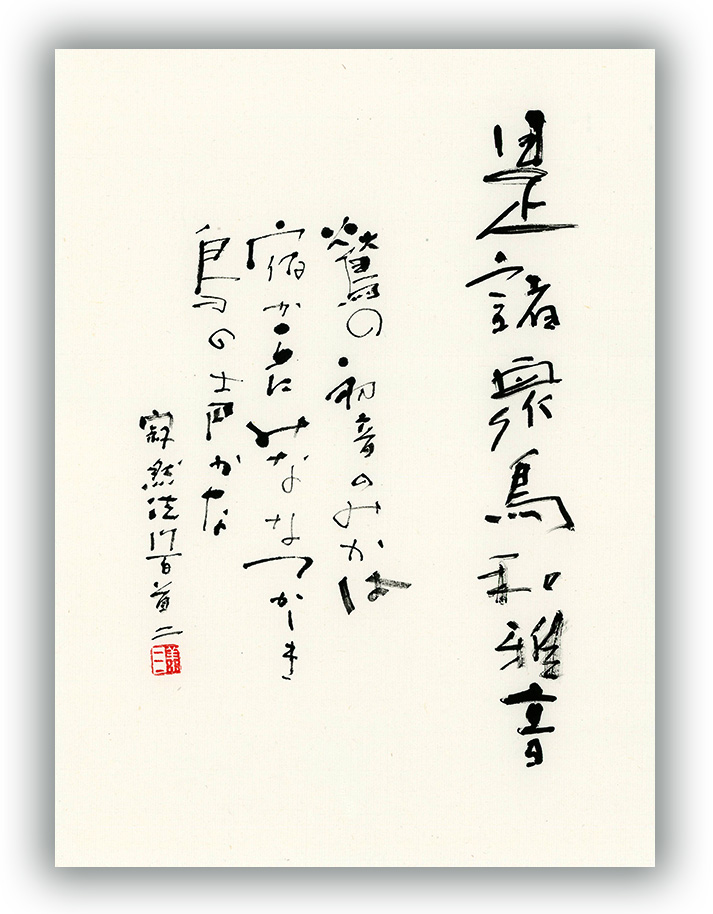 是諸衆鳥和雅音
鶯の初音のみかは
宿からにみななつかしき
鳥の声かな
寂然法門百首二